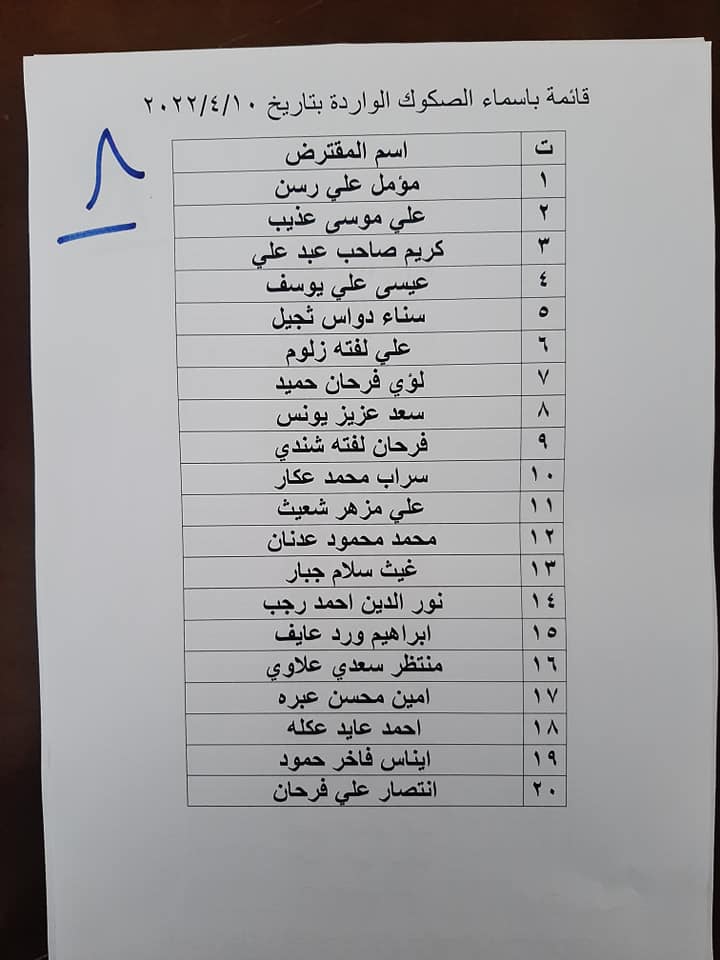 قائمة باسماء الصكوك الواردة بتاريخ ٢٠٢٢/٤/١٠
٨
ت اسم المقترض
١ مؤمل علي رسن
٢ علي موسى عذيب
٣ كريم صاحب عبد علي
٤ عيسى علي يوسف
٥ سناء دواس ثجيل
٦ علي لفته زلوم
٧ لؤي فرحان حميد
٨ سعد عزيز يونس
٩ فرحان لفته شندي
١٠ سراب محمد عكار
١١ علي مزهر شعيث
١٢ محمد محمود عدنان
١٣ غيث سلام جبار
١٤ نور الدين احمد رجب
١٥ ابراهيم ورد عايف
١٦ منتظر سعدي علاوي
١٧ امين محسن عبره
١٨ احمد عايد عكله
١٩ ايناس فاخر حمود
٢٠ انتصار علي فرحان